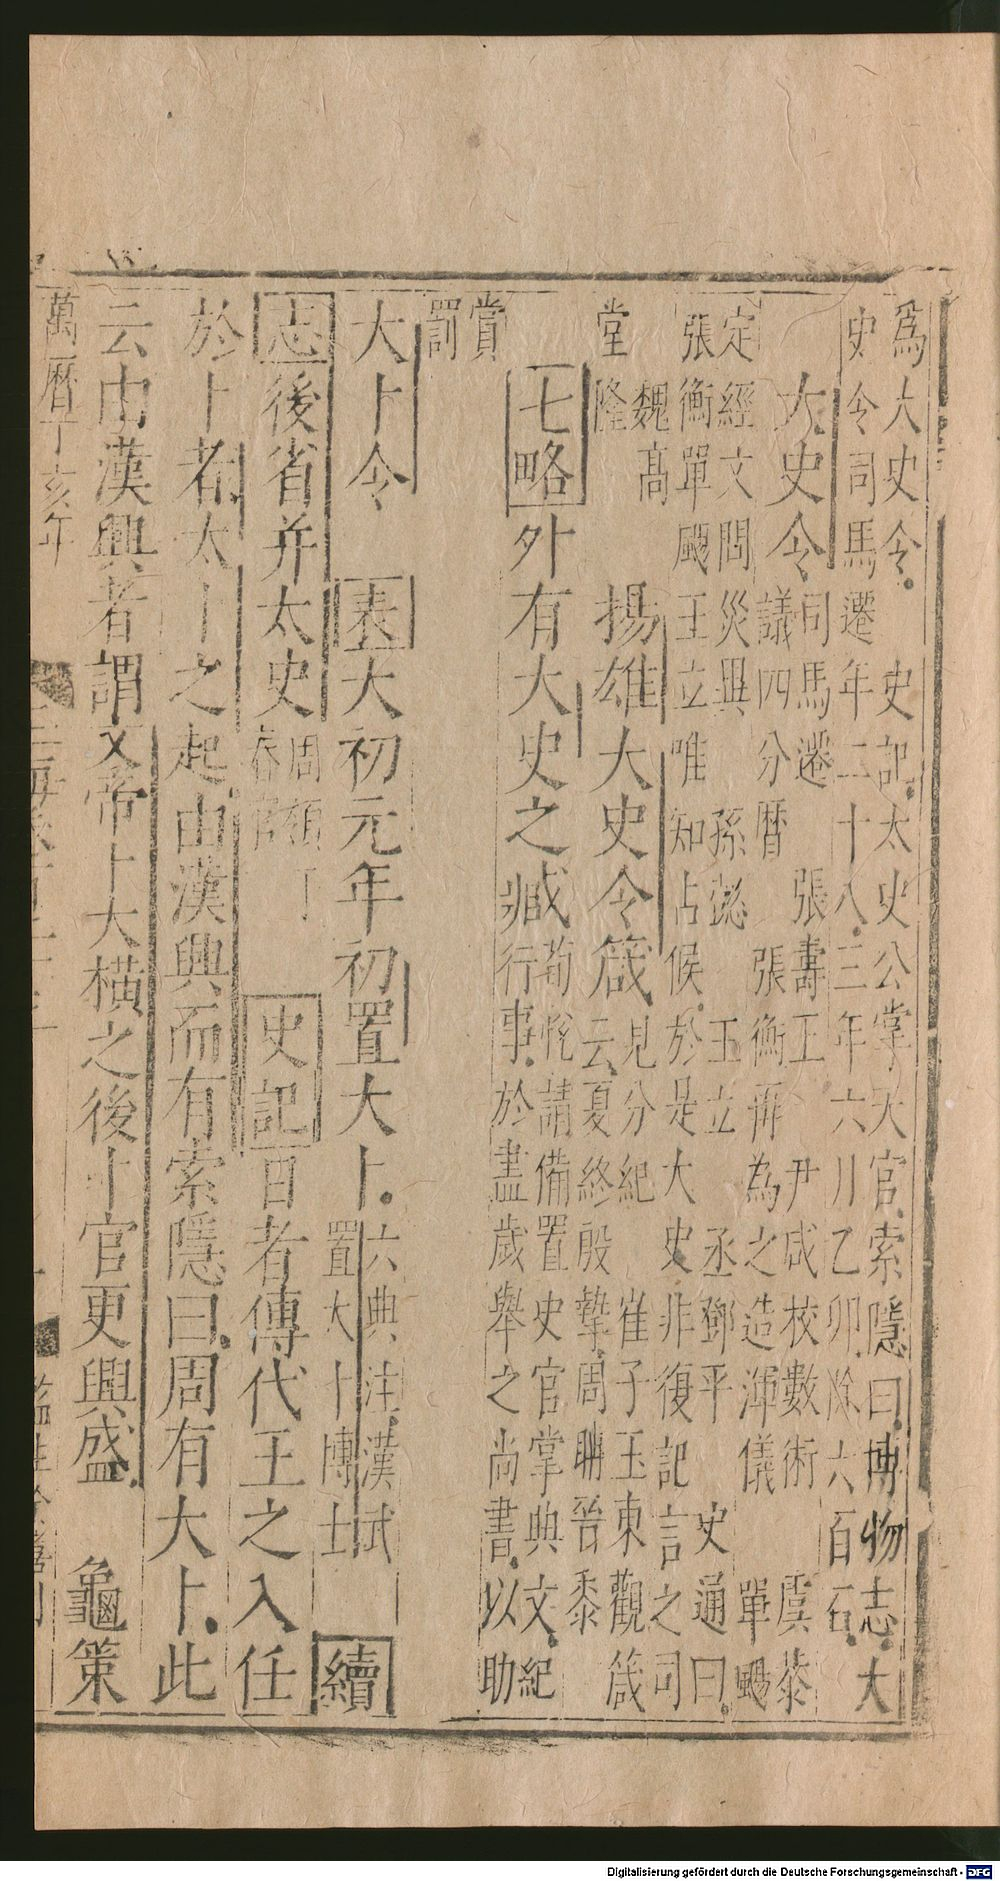 爲大史令。　史記太史公掌天官索隱曰博物志大
史令司馬遷年二十八三年六月乙卯除六百石
大史令司馬遷　張壽王　尹咸校數術　虞恭
議四分曆　張衡再為之造渾儀　單颺
定經文問災異　孫懿　王立　丞鄧平　史通曰
張衡單颺王立唯知占候於是大史非復記言之司
魏高
堂隆　揚雄大史令箴見分紀　崔子玉東觀箴
云夏終殷摯周聃晉黍
七略外有大史之藏荀恱請備置史官掌典文紀
行事於盡歲舉之尚書以助
賞
罰
大卜令　表大初元年初置大卜六典注漢武
置大卜博士　續
志後省并太史周
春官　史記日者傳代王之入任
於卜者太卜之起由漢興而有索隱曰周有大卜此
云由漢興者謂文帝卜大橫之後卜官更興盛　龜策
萬曆丁亥年
Digitalisierung gefördert durch die Deutsche Forschungsgemeinschaft - DFG